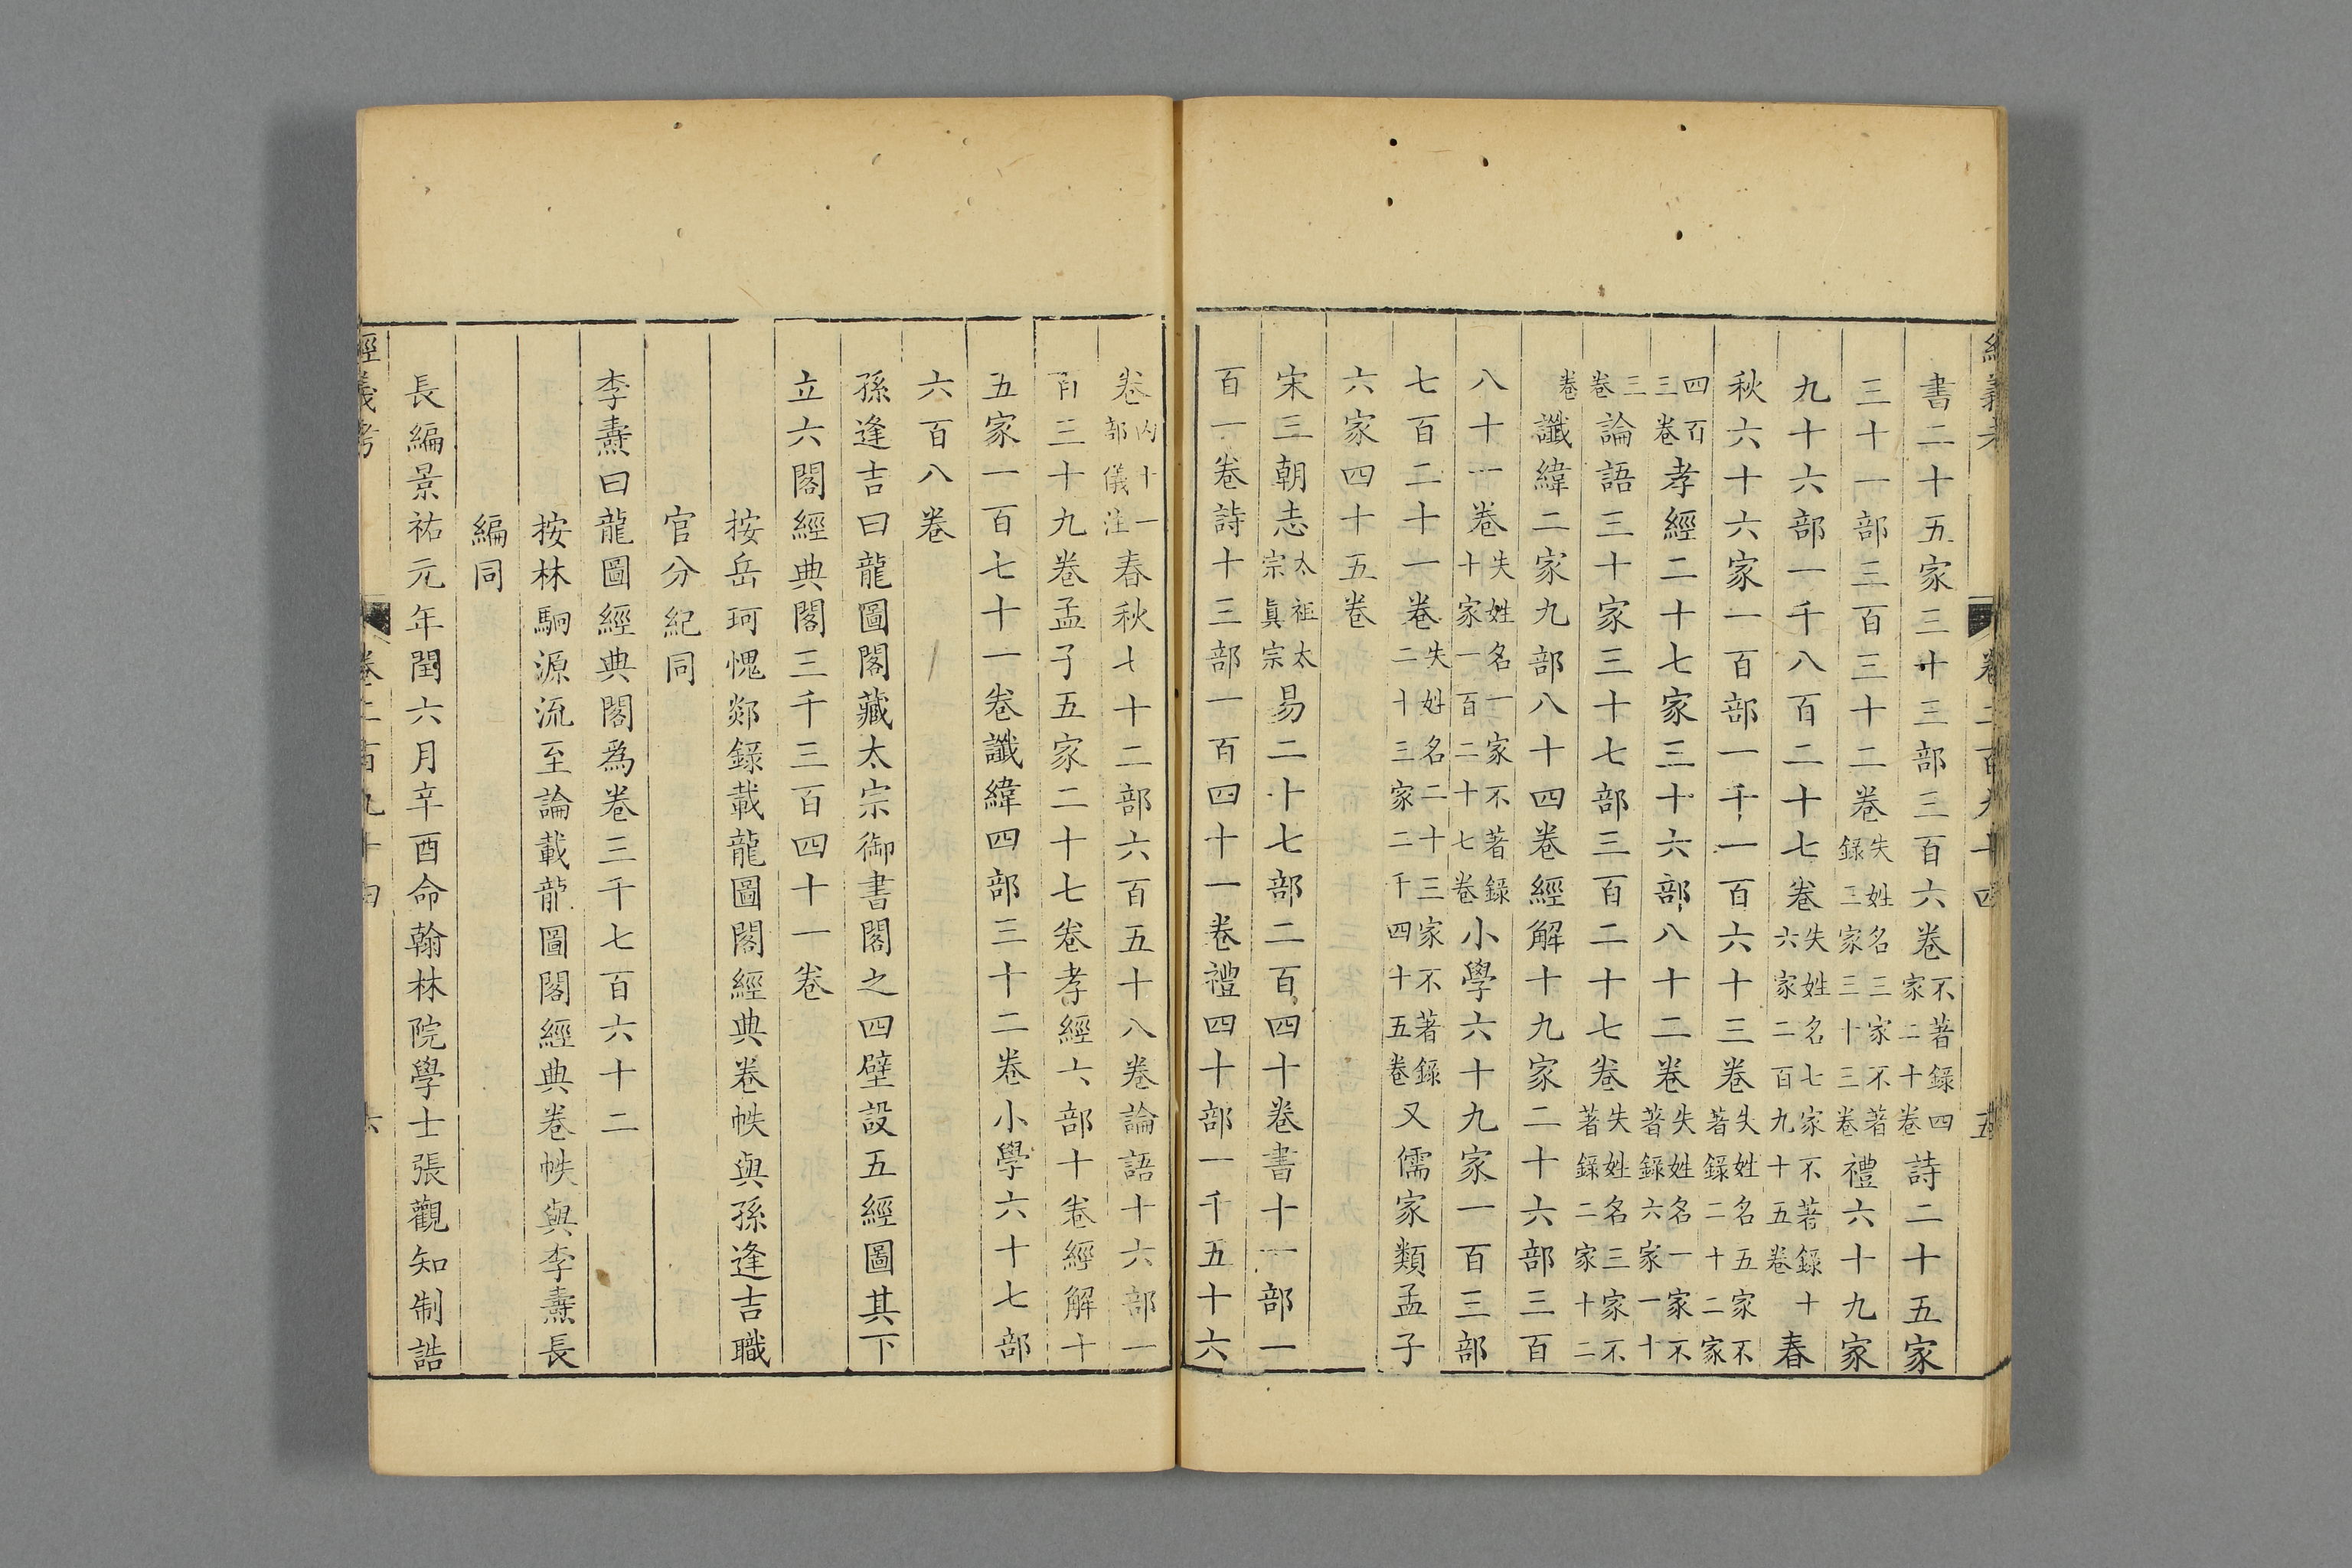 書二十五家三十三部三百六卷不著錄四家二十卷詩二十五家
三十一部三百三十二卷失姓名三家不著錄三家三十三卷禮六十九家
九十六部一千八百二十七卷失姓名七家不著錄十六家二百九十五卷春
秋六十六家一百部一千一百六十三卷失姓名五家不著錄二十二家
四百三卷孝經二十七家三十六部八十二卷失姓名一家不著錄六家一十
三卷論語三十家三十七部三百二十七卷失姓名三家不著錄二家十二
卷讖緯二家九部八十四卷經解十九家二十六部三百
八十一卷失姓名一家不著錄十家一百二十七卷小學六十九家一百三部
七百二十一卷失姓名二十三家不著錄二十三家二千四十五卷又儒家類孟子
六家四十五卷
宋三朝志太祖太宗眞宗易二十七部二百四十卷書十一部一
百一卷詩十三部一百四十一卷禮四十部一千五十六
卷內十一部儀注春秋七十二部六百五十八卷論語十六部一
百三十九卷孟子五家二十七卷孝經六部十卷經解十
五家一百七十一卷讖緯四部三十二卷小學六十七部
六百八卷
孫逢吉曰龍圖閣藏太宗御書閣之四壁設五經圖其下
立六閣經典閣三千三百四十一卷
按岳珂愧郯錄載龍圖閣經典卷帙與孫逢吉職
官分紀同
李燾曰龍圖經典閣爲卷三千七百六十二
按林駉源流至論載龍圖閣經典卷帙與李燾長
編同
長編景祐元年閏六月辛酉命翰林院學士張觀知制誥
經義考
卷二百九十四
六